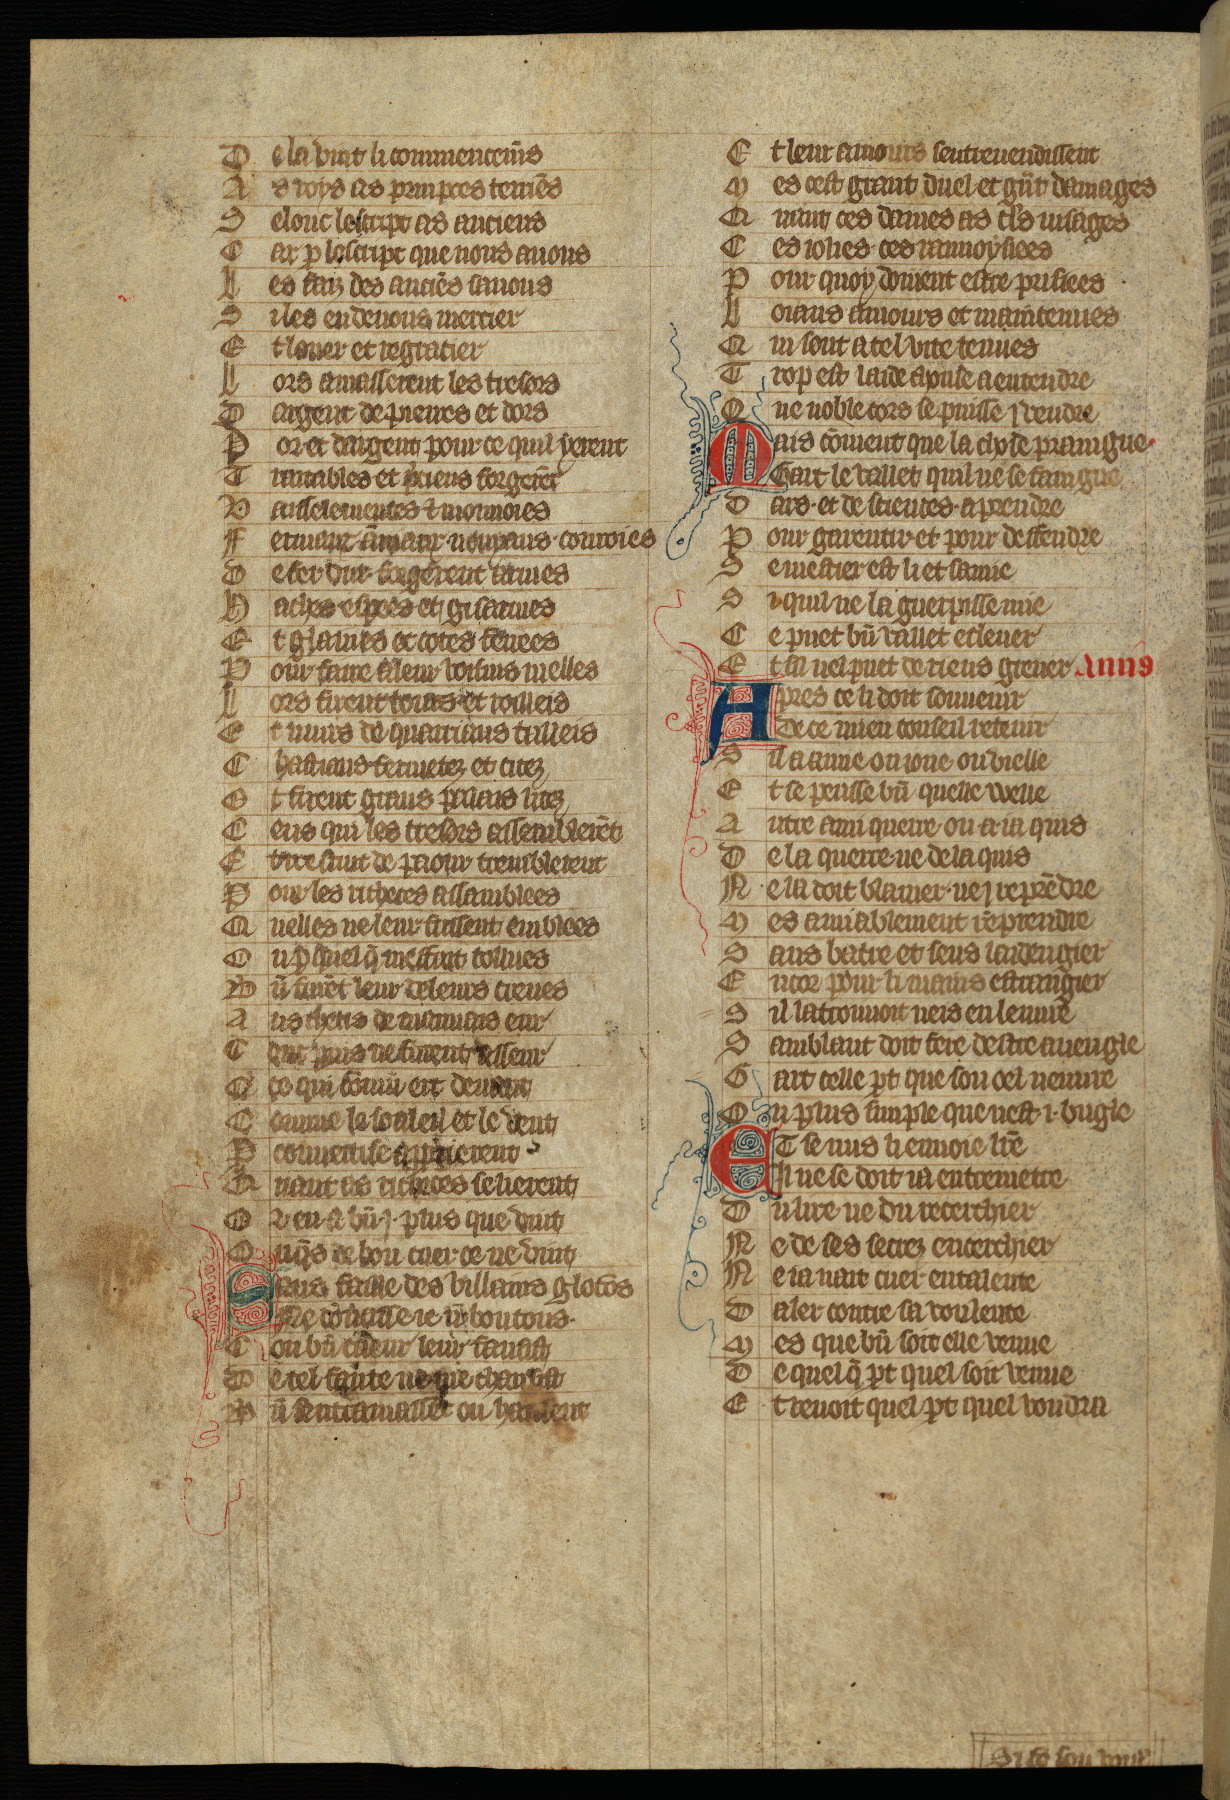 De la vint li commencemẽs
As roys as princes terriẽs
Selonc lescript as anciens
Car p lescript que nous auons
Les faiz des anciẽs sauons
Si les en deuons mercier
Et louer et regracier
Lors amasserent les tresors
Dargent de pierres et dors
Dor et dargent pour ce quil yerent
Traitables et p̃cieus forgerẽt
Vaisselementes et monnoies
Fermaux aniaux noyaus corroies
De fer dur forgerent armes
Haches espees et gisarmes
Et glaiues et cotes ferrees
Pour faire a leur voisins mellees
Lors firent tours et roilleis
Et murs de quarriaus tailleis
Chastiaus fermetez et citez
Et firent grans palais litez
Ceus qui les tresors assemblerẽt
Car tuit de paour tremblerent
Pour les richeces assamblees
Quelles ne leur fussent emblees
Ou p quelq̃ meffait tollues
Bñ furẽt leur deleurs creues
As chetis de mauuais eur
Conc puis ne furent asseur
Que ce qui cõmũ ert deuant
Comme le soleil et le vent
P couuoitise approprierent
Quant as richeces se lierent
Or en a bñ .j. plus que vint
Onq̃s de bon cuer ce ne vint
Sans faille des villains glotõs
Ne dõnasse ie .ij. boutons
Com bñ cueur leur fausist
De tel faute ne me chausist
Bñ sentramassent ou haissent
Et leur amours sentreuendissent
Mes cest grant duel et grãt damages
Quant ces dames as clers uisages
Ces iolies ces ranuoysiees
Pour quoy doiuent estre prisiees
Loiaus amours et maintenues
Qui sont a tel vite tenues
Trop est laide chose a entendre
Que noble cors se puisse j vendre
Mais cõment que la chose praingne
Gart le vallet quil ne se faingne
Dars et de sciences aprendre
Pour garentir et pour deffendre
Se mestier est li et samie
Si quil ne la guerpisse mie
Ce puet bñ vallet esleuer
Et si nel puet de riens greuer Amis
Apres ce li doit souuenir
De ce mien conseil retenir
Sil a amie ou ione ou vielle
Et se pensse bñ quelle vuelle
Autre ami querre ou a ia quis
De la querre ne de la quis
Ne la doit blamer ne j reprẽdre
Mes amiablement reprendre
Sans batre et sens laidengier
Encor pour li mains estrangier
Sil la trouuoit neis en leuure
Samblant doit fere destre auengle
Gart celle pt que son oel neuure
Ou plus simple que nest .i. bugle
Et se nus li enuoie lr̃e
Il ne se doit ia entremetre
Du lire ne du recerchier
Ne de ses secrez encerchier
Ne ia nait cuer entalente
Daler contre sa voulente
Mes que bñ soit elle venue
De quelq̃ pt quel soit venue
Et reuoit quel pt quel voudra
Si se son voul